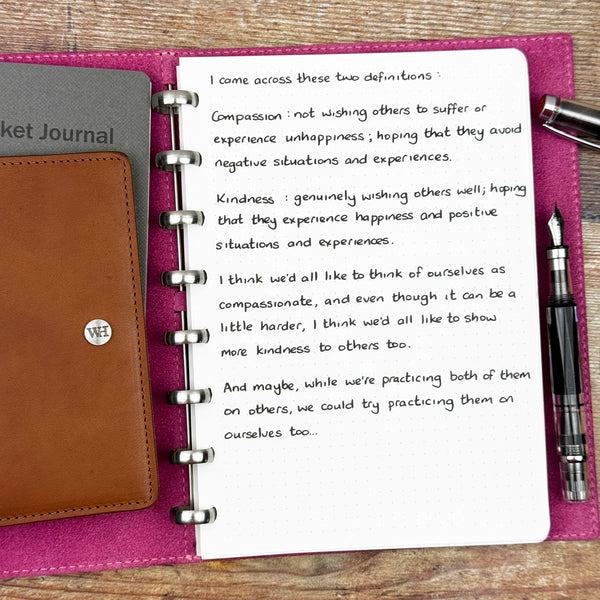 ket Journal
WH
I came across these two definitions :
Compassion : not wishing others to suffer or
experience unhappiness ; hoping that they avoid
negative situations and experiences.
Kindness : genuinely wishing others well; hoping
that they experience happiness and positive
situations and experiences.
I think we'd all like to think of ourselves as
compassionate, and even though it can be a
little harder, I think we'd all like to show
more kindness to others too.
And maybe, while we're practicing both of them
on others, we could try practicing them on
ourselves too...